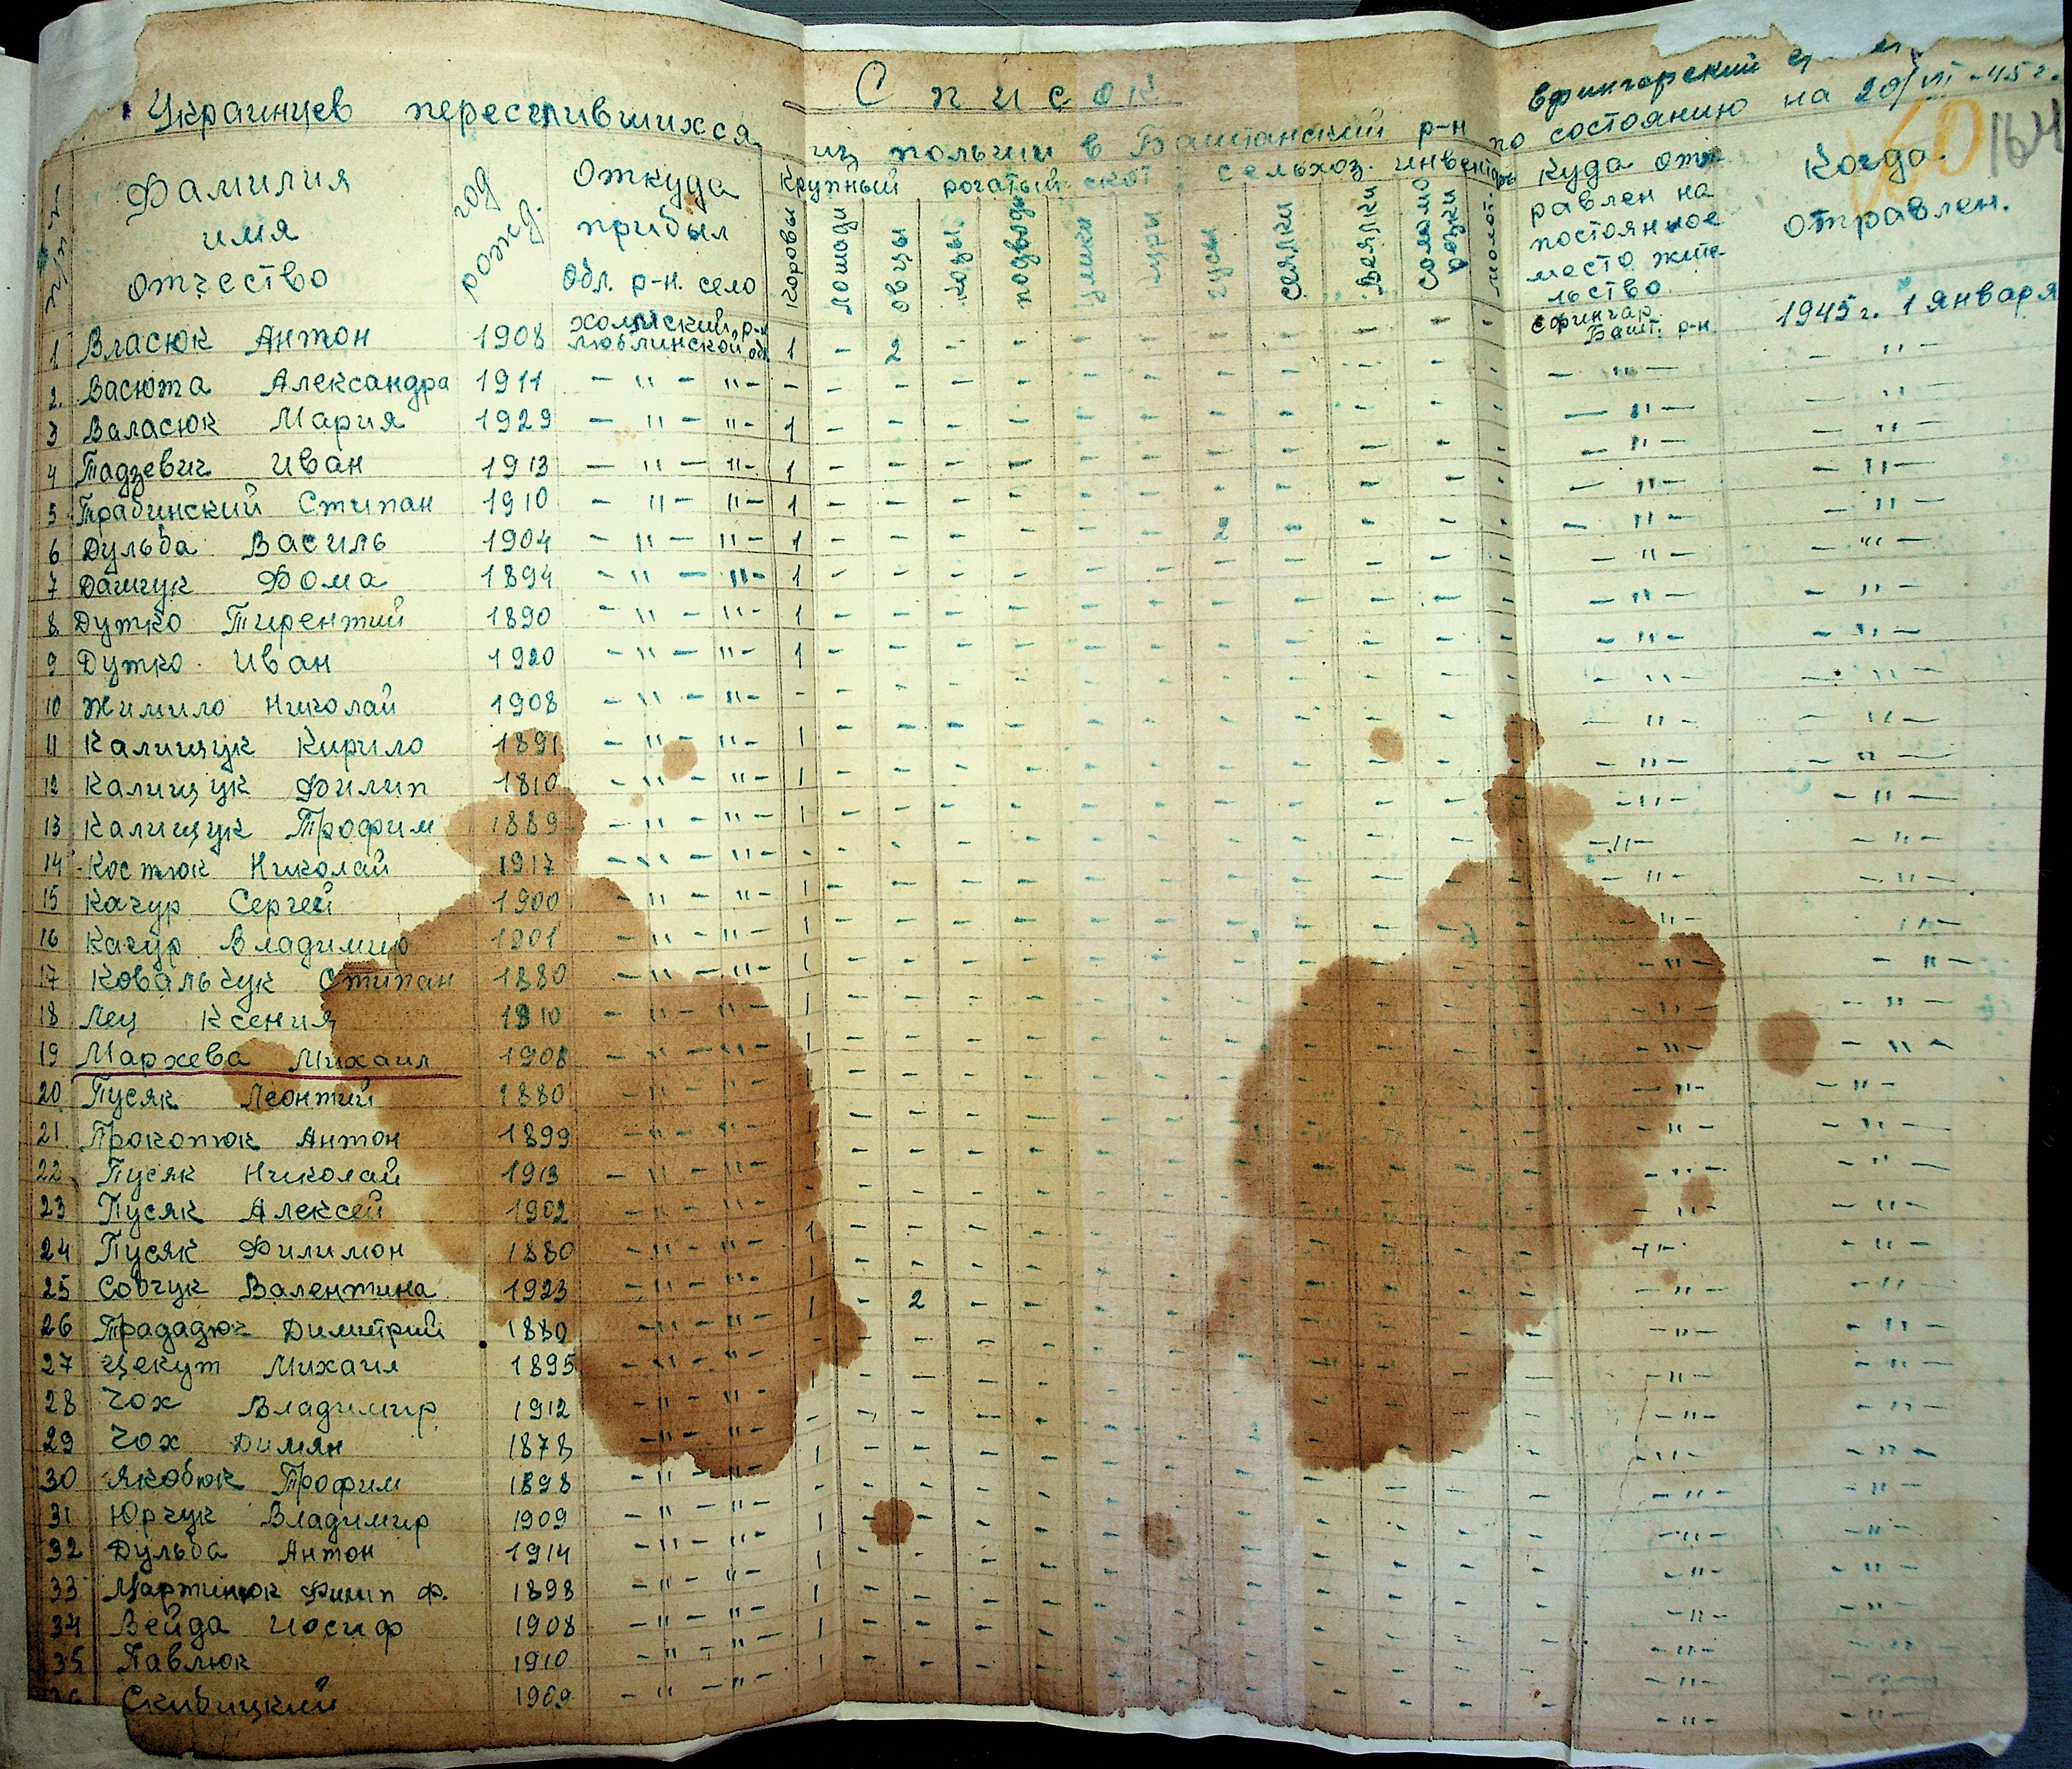 Список
Ефингарский
Украинцев переселившихся из польши в Баштанский р-н по состоянию на 20/VI-45 г.
164
№ п/п
Фамилия имя отчество
год рожд.
Откуда прибыл
Обл. р-н. село
Крупный рогатый скот, сельхоз. инвентарь
Коровы
лошади
овцы
козы
подводы
гуси
сеялки
Веялки
Куда отправлен на постоянное место жительство
Когда отправлен.
1 Власюк Антон 1908 холмский р-н люблинской обл. 1 - 2 - - - - - - - - - ефингар Башт. р-н 1945 г. 1 января
2. Васюта Александра 1911 - " - " - - - - - - - - - - - - - - " - - " -
3 Валасюк Мария 1929 - " - " - 1 - - - - - - - - - - - - " - - " -
4 Тадзевич Иван 1913 - " - " - 1 - - - - - - - - - - - - " - - " -
5 Трабинский Стипан 1910 - " - " - 1 - - - - - - - - - - - - " - - " -
6 Дульба Василь 1904 - " - " - 1 - - - - - - 2 - - - - - " - - " -
7 Дашчук Фома 1894 - " - " - 1 - - - - - - - - - - - - " - - " -
8 Дутко Тирентий 1890 - " - " - 1 - - - - - - - - - - - - " - - " -
9 Дутко Иван 1920 - " - " - 1 - - - - - - - - - - - - " - - " -
10 Жимило Николай 1908 - " - " - - - - - - - - - - - - - - " - - " -
11 Калищук Кирило 1891 - " - " - 1 - - - - - - - - - - - - " - - " -
12 Калищук Филип 1810 - " - " - 1 - - - - - - - - - - - - " - - " -
13 Калищук Трофим 1889 - " - " - 1 - - - - - - - - - - - - " - - " -
14 Костюк Николай 1917 - " - " - - - - - - - - - - - - - - " - - " -
15 Качур Сергей 1900 - " - " - 1 - - - - - - - - - - - - " - - " -
16 Качур Владимир 1901 - " - " - 1 - - - - - - - - - - - - " - - " -
17 Ковальчук Стипан 1880 - " - " - 1 - - - - - - - - - - - - " - - " -
18 Лец Ксения 1910 - " - " - 1 - - - - - - - - - - - - " - - " -
19 Мархева Михаил 1908 - " - " - 1 - - - - - - - - - - - - " - - " -
20 Пусяк Леонтий 1880 - " - " - 1 - - - - - - - - - - - - " - - " -
21 Прокопюк Антон 1899 - " - " - 1 - - - - - - - - - - - - " - - " -
22 Пусяк Николай 1913 - " - " - - - - - - - - - - - - - " - - " -
23 Пусяк Алексей 1902 - " - " - - - - - - - - - - - - - " - - " -
24 Пусяк Филимон 1880 - " - " - 1 - - - - - - - - - - - - " - - " -
25 Совчук Валентина 1923 - " - " - 1 - - - - - - - - - - - - " - - " -
26 Трададюк Димитрий 1880 - " - " - 1 - 2 - - - - - - - - - - " - - " -
27 Цекут Михаил 1895 - " - " - - - - - - - - - - - - - - " - - " -
28 Чох Владимир 1912 - " - " - 1 - - - - - - - - - - - - " - - " -
29 Чох Димян 1878 - " - " - - - - - - - - - - - - - - " - - " -
30 Якобюк Трофим 1898 - " - " - 1 - - - - - - - - - - - - " - - " -
31 Юрчук Владимир 1909 - " - " - - - - - - - - - - - - - " - - " -
32 Дульба Антон 1914 - " - " - 1 - - - - - - - - - - - - " - - " -
33 Мартинюк Филип Ф. 1898 - " - " - 1 - - - - - - - - - - - - " - - " -
34 Вейда Иосиф 1908 - " - " - 1 - - - - - - - - - - - - " - - " -
35 Павлюк 1910 - " - " - 1 - - - - - - - - - - - - " - - " -
36 Скибицкий 1909 - " - " - 1 - - - - - - - - - - - - " - - " -